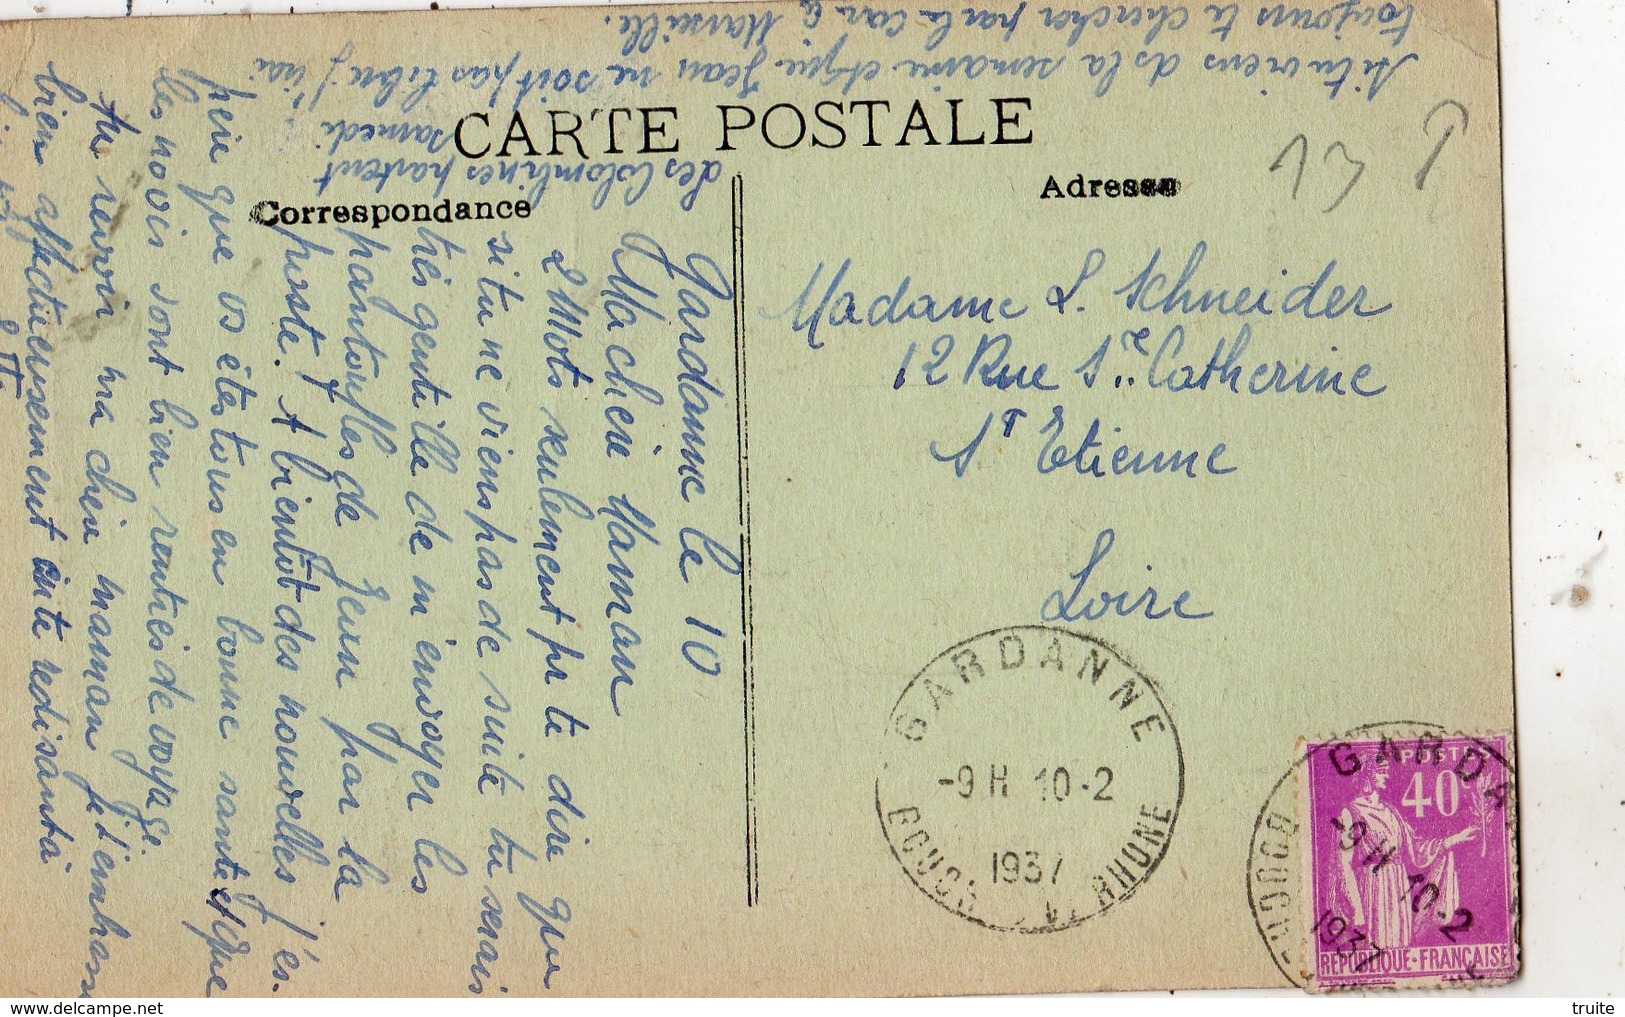 CARTE POSTALE
Correspondance
Adresse
13
Gardanne le 10
Ma chère Maman
2 Mots seulement pr te dire que
si tu ne viens pas de suite tu serais
très gentille de m'envoyer les
pantoufles de Jean par la
poste. A bientôt des nouvelles j'es-
père que vs êtes tous en bonne santé et que
les novis sont bien rentrés de voyage.
Au revoir ma chère maman je t'embrasse
bien affectueusement en te redisant à
Les Colombines partent
samedi
Si tu viens ds la semaine et que Jean ne soit pas libre j'irai
toujours te chercher par le car à Marseille.
Madame L. Schneider
12 Rue Ste Catherine
St Etienne
Loire
GARDANNE
-9 H 10-2
1937
BOUCH. DU RHONE
POSTES
40
REPUBLIQUE-FRANÇAISE
GARDA
-9 H 10-2
1937
BOUCH
delcampe.net
truite